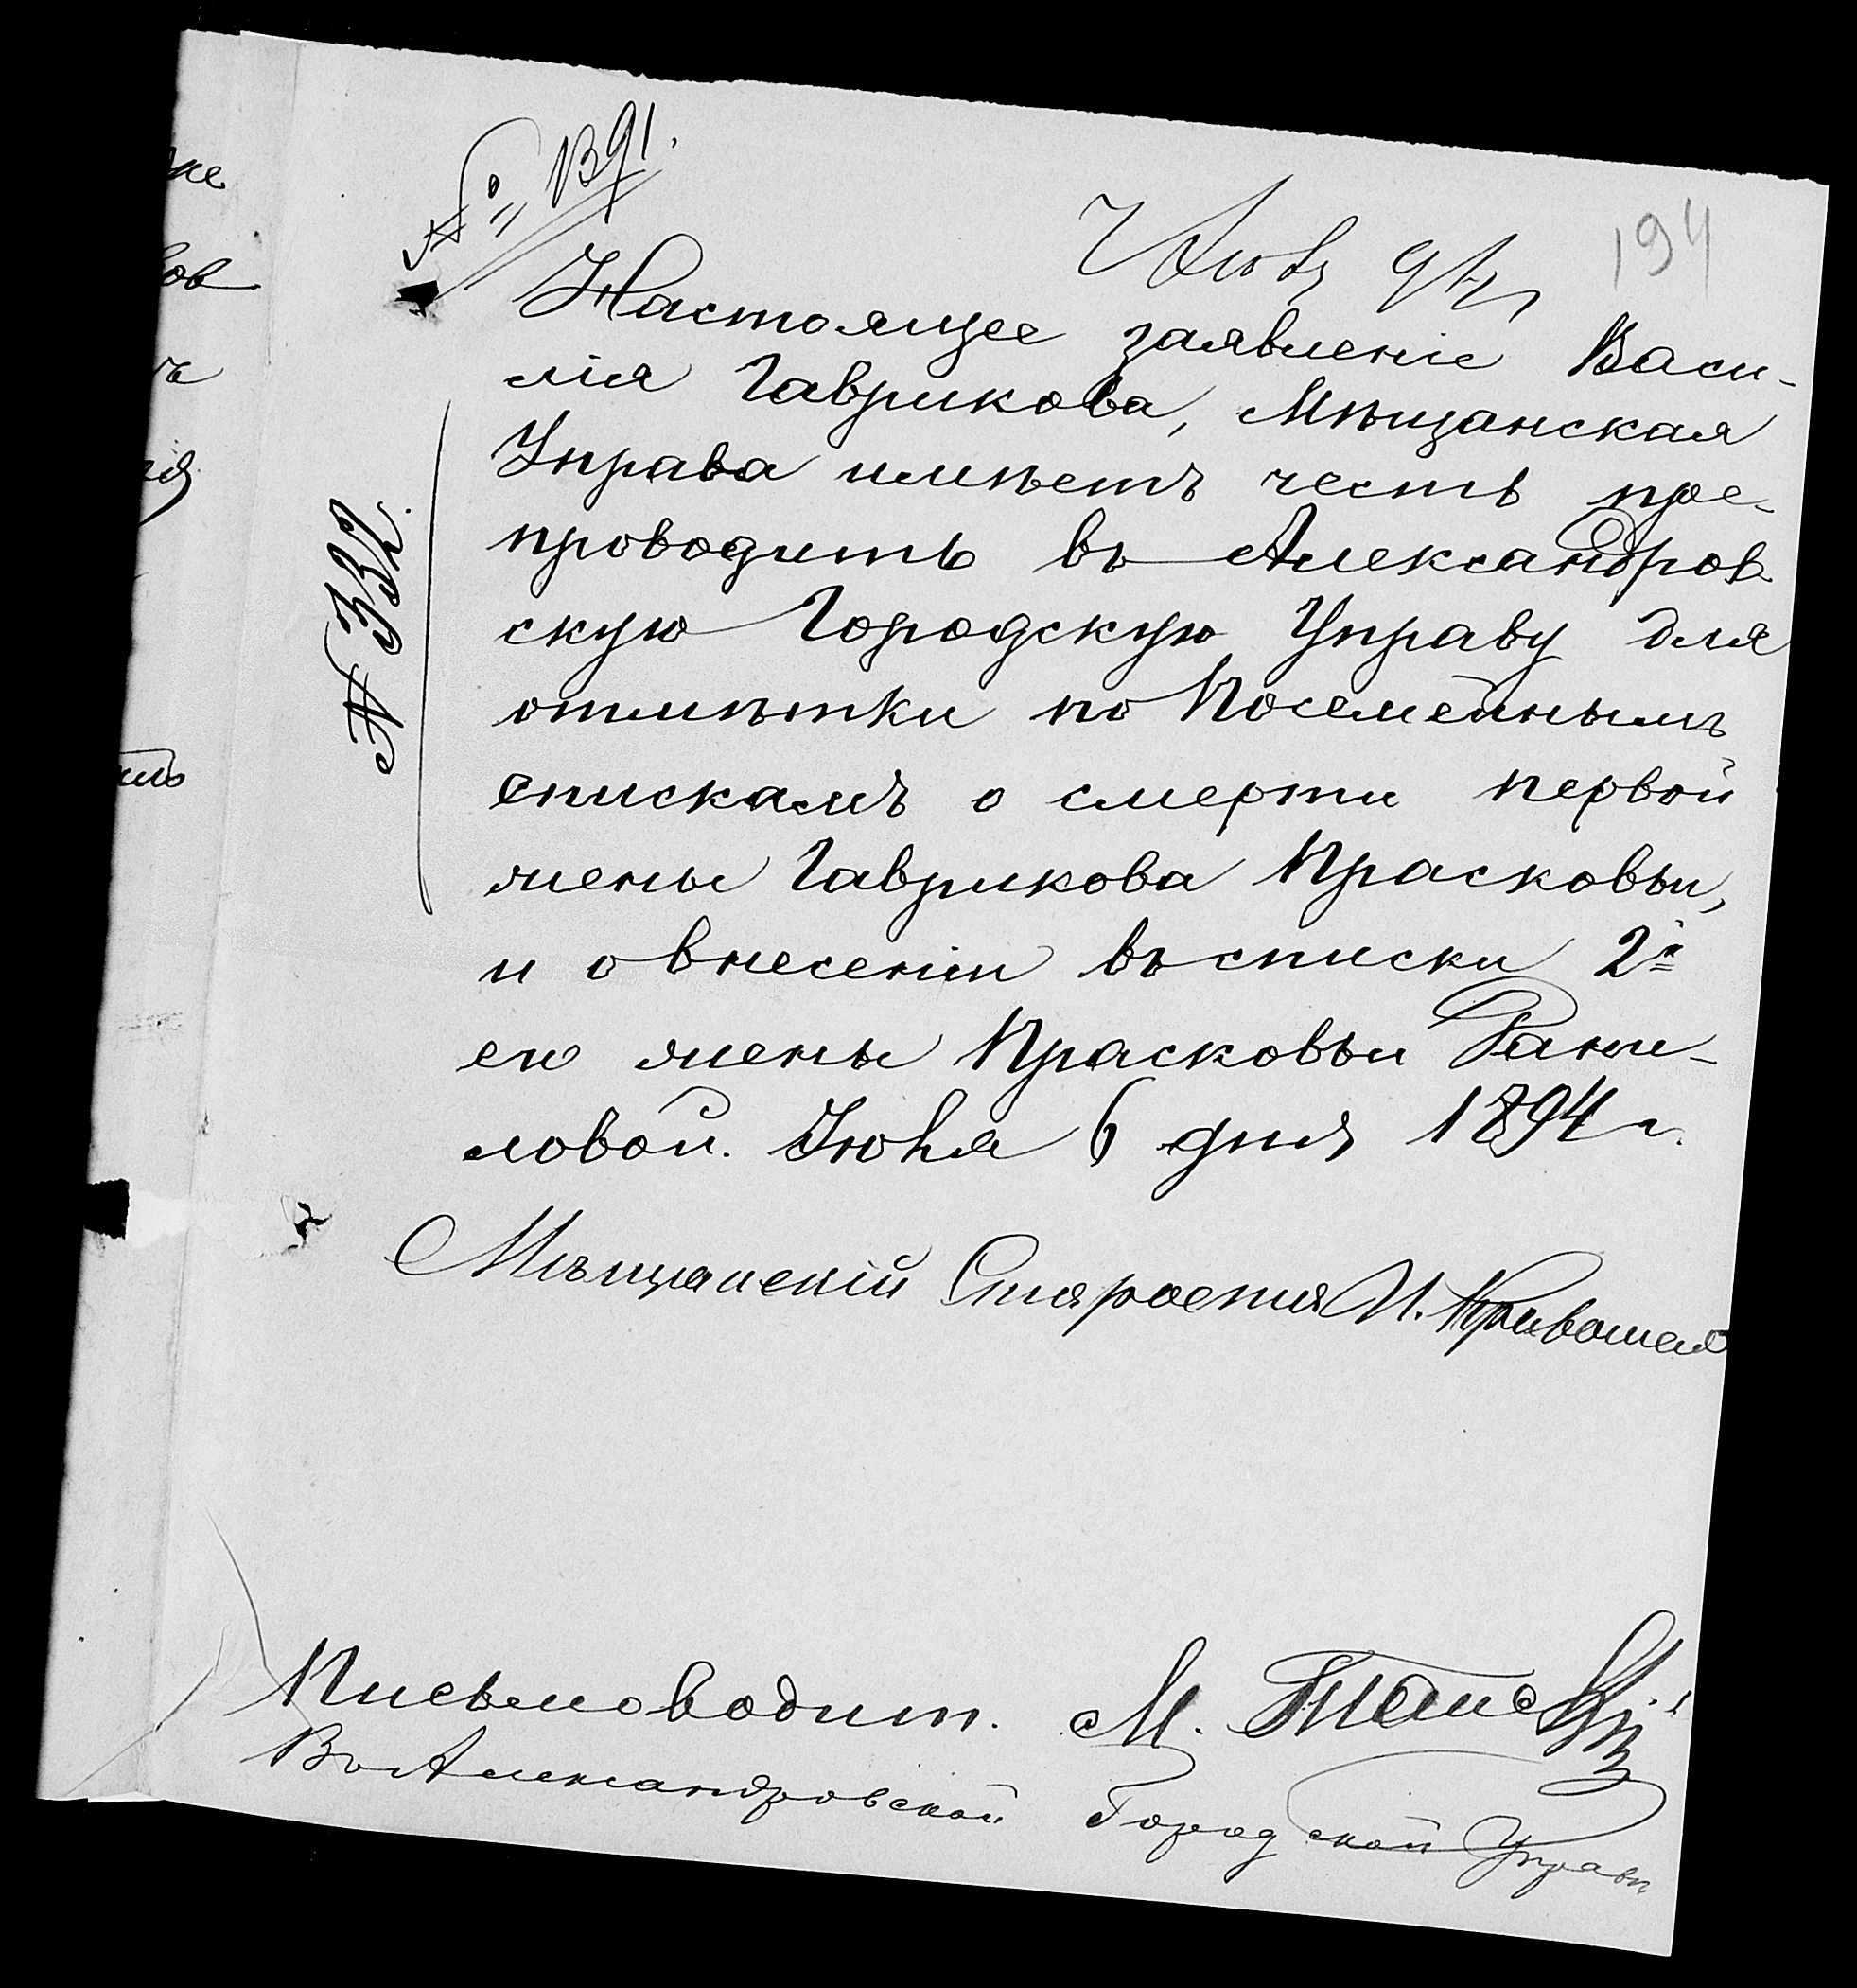 № 1391.
194
Настоящее заявленіе Васи-
лія Гаврикова, Мѣщанская
Управа имѣетъ честь пре-
проводить въ Александров
скую Городскую Управу для
отмѣтки по Посемейнымъ
спискамъ о смерти первой
жены Гаврикова Прасковьи,
и о внесеніи въ списки 2й
его жены Прасковьи Дани-
ловой. Іюня 6 дня 1894 г.
№ 332.
Мѣщанскій Староста И. Кривошея
Письмоводит. М.
Въ Александровской Городской Управѣ